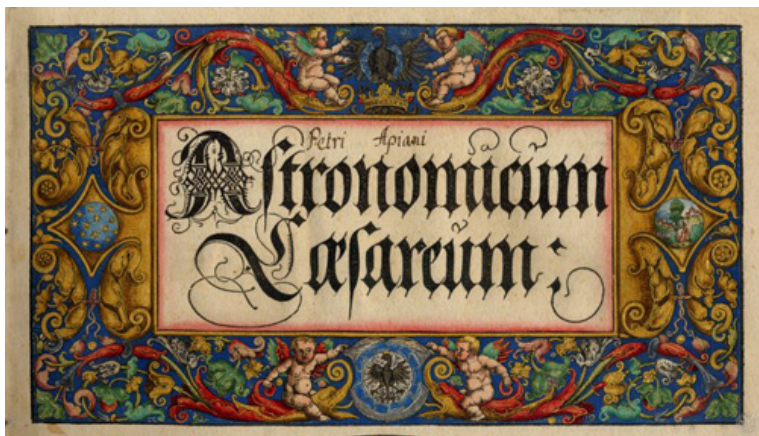 Petri Apiani
Aſtronomicŭm
Cæſareŭm: